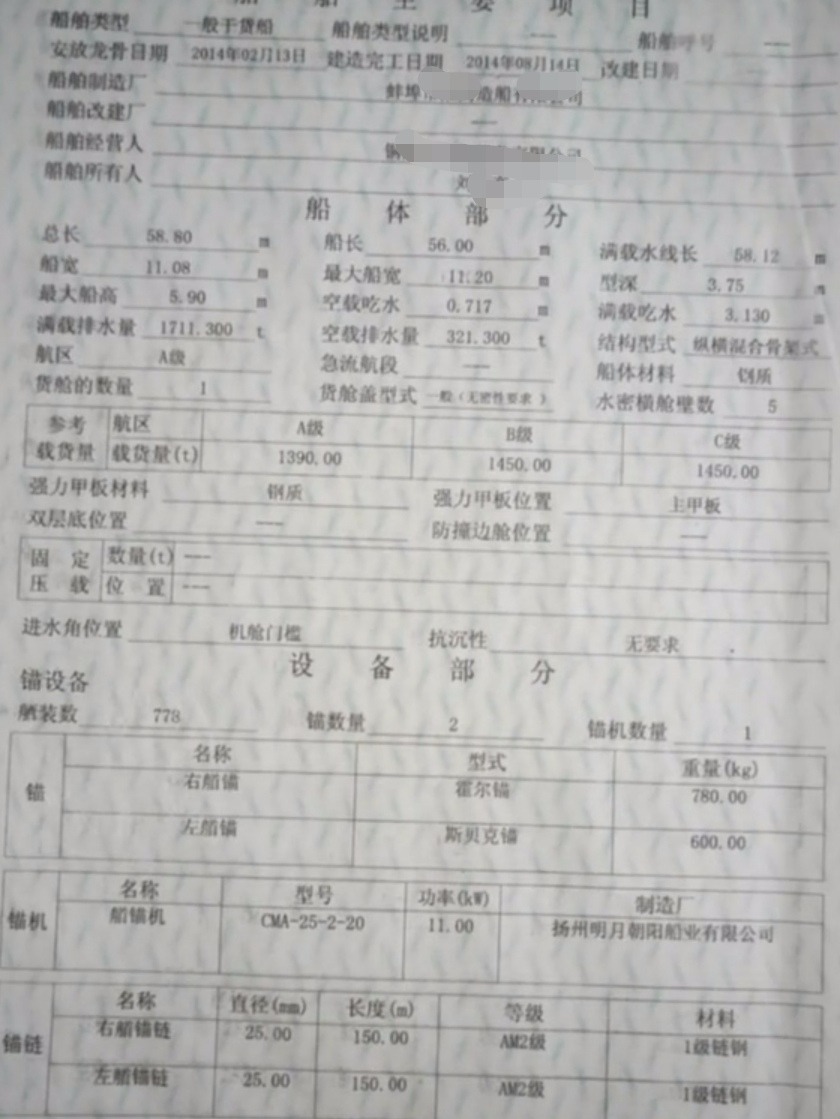 船舶主要项目
船舶类型 一般干货船 船舶类型说明 —— 船舶呼号 ——
安放龙骨日期 2014年02月13日 建造完工日期 2014年08月14日 改建日期 ——
船舶制造厂 蚌埠 造船有限公司
船舶改建厂 ——
船舶经营人 有限公司
船舶所有人 刘
船体部分
总长 58.80 m 船长 56.00 m 满载水线长 58.12 m
船宽 11.08 m 最大船宽 11.20 m 型深 3.75 m
最大船高 5.90 m 空载吃水 0.717 m 满载吃水 3.130 m
满载排水量 1711.300 t 空载排水量 321.300 t 结构型式 纵横混合骨架式
航区 A级 急流航段 —— 船体材料 钢质
货舱的数量 1 货舱盖型式 一般(无密性要求) 水密横舱壁数 5
参考 航区 A级 B级 C级
载货量 载货量(t) 1390.00 1450.00 1450.00
强力甲板材料 钢质 强力甲板位置 主甲板
双层底位置 —— 防撞边舱位置 ——
固定 数量(t) ——
压载 位置 ——
进水角位置 机舱门槛 抗沉性 无要求
设备部分
锚设备
舾装数 778 锚数量 2 锚机数量 1
锚 名称 型式 重量(kg)
右艏锚 霍尔锚 780.00
左艏锚 斯贝克锚 600.00
锚机 名称 型号 功率(kW) 制造厂
艏锚机 CMA-25-2-20 11.00 扬州明月朝阳船业有限公司
锚链 名称 直径(mm) 长度(m) 等级 材料
右艏锚链 25.00 150.00 AM2级 1级链钢
左艏锚链 25.00 150.00 AM2级 1级链钢